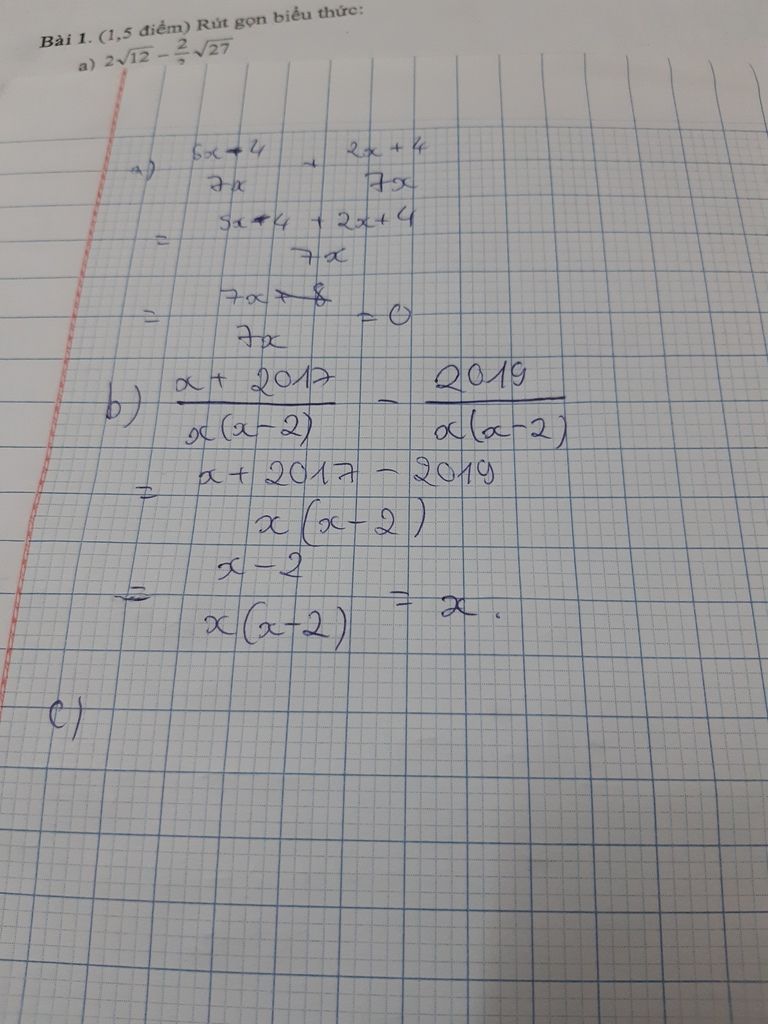 Bài 1. (1,5 điểm) Rút gọn biểu thức:
a) 2√12 - 2/3 √27
a) 5x-4 / 7x + 2x+4 / 7x
= 5x-4 + 2x+4 / 7x
= 7x / 7x = 0
b) x+ 2017 / x(x-2) - 2019 / x(x-2)
= x+ 2017 - 2019 / x(x-2)
= x-2 / x(x-2) = x.
c)